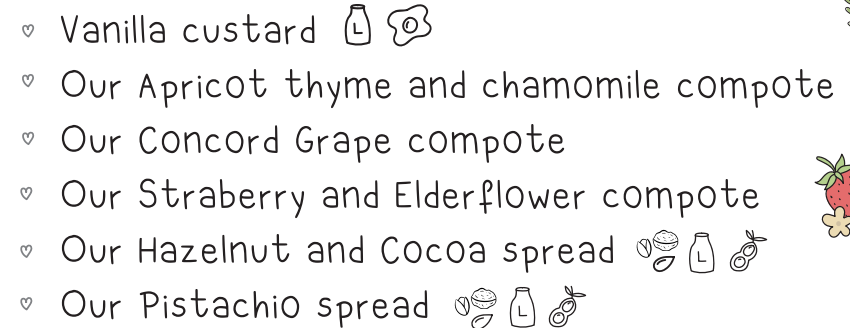 Vanilla custard L
Our Apricot thyme and chamomile compote
Our Concord Grape compote
Our Straberry and Elderflower compote
Our Hazelnut and Cocoa spread L
Our Pistachio spread L